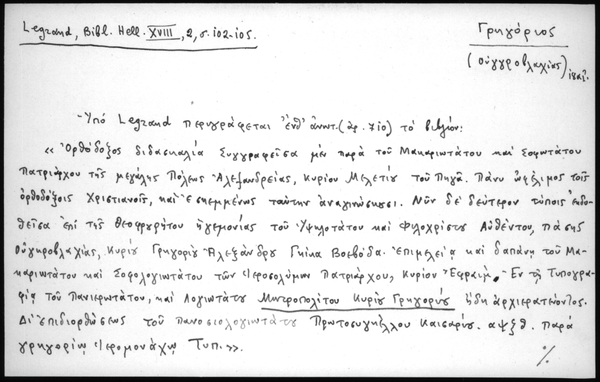 Legrand, Bibl. Hell. XVIII, 2, σ. 102-105.
Γρηγόριος
(Οὐγγροβλαχίας)
Ὑπὸ Legrand περιγράφεται ἐνθ' ἀνωτ. (ἀρ. 710) τὸ βιβλίον:
« Ὀρθόδοξος διδασκαλία Συγγραφεῖσα μὲν παρὰ τοῦ Μακαριωτάτου καὶ Σοφωτάτου
Πατριάρχου τῆς μεγάλης Πόλεως Ἀλεξανδρείας, Κυρίου Μελετίου τοῦ Πηγᾶ. Πάνυ ὠφέλιμος τοῖς
ὀρθοδόξοις Χριστιανοῖς, καὶ ταύτην ἀναγινώσκουσι. Νῦν δὲ δεύτερον τύποις ἐκδο-
θεῖσα ἐπὶ τῆς θεοφρουρήτου ἡγεμονίας τοῦ Ὑψηλοτάτου καὶ Φιλοχρίστου Αὐθέντου, πάσης
Οὐγκροβλαχίας, Κυρίου Γρηγορίου Ἀλεξάνδρου Γκίκα Βοεβόδα. Ἐπιμελείᾳ καὶ δαπάνῃ τοῦ Μα-
καριωτάτου καὶ Σοφολογιωτάτου τῶν Ἱεροσολύμων Πατριάρχου, Κυρίου Ἐφραίμ. Ἐν τῇ Τυπογρα-
φίᾳ τοῦ Πανιερωτάτου, καὶ Λογιωτάτου Μητροπολίτου Κυρίου Γρηγορίου ἤδη ἀρχιερατεύοντος.
Δι' ἐπιδιορθώσεως τοῦ πανοσιολογιωτάτου Πρωτοσυγκέλλου Καισαρίου. αψξθ. Παρὰ
γρηγορίῳ Ἱερομονάχῳ Τυπ.».
%